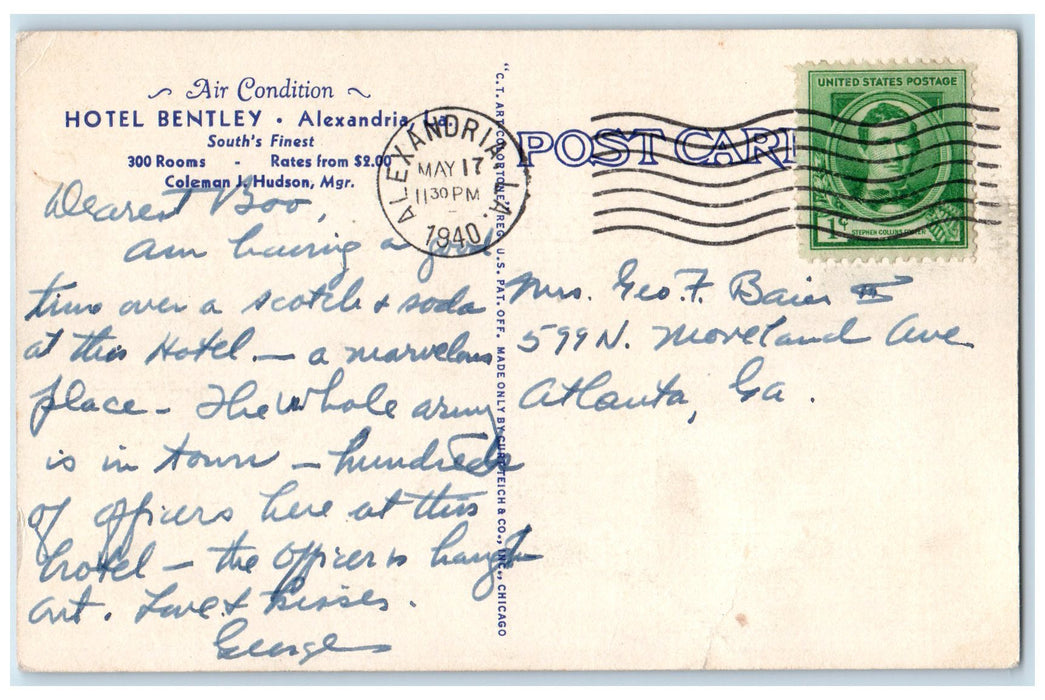 Air Condition
HOTEL BENTLEY • Alexandria, La.
South's Finest
300 Rooms - Rates from $2.00
Coleman J. Hudson, Mgr.
Dearest Boo,
Am having a good
time over a scotch & soda
at this Hotel — a marvelous
place — The whole army
is in town — hundreds
of officers here at this
hotel — the Officers hangin
out. Love & Kisses.
George
"C.T. ART-COLORTONE" REG. U.S. PAT. OFF. MADE ONLY BY CURT TEICH & CO., INC., CHICAGO
ALEXANDRIA, LA.
MAY 17
11 30 PM
1940
POST CARD
UNITED STATES POSTAGE
1¢
STEPHEN COLLINS FOSTER
Mrs. Geo. F. Baier III
599 N. Moreland Ave
Atlanta, Ga.